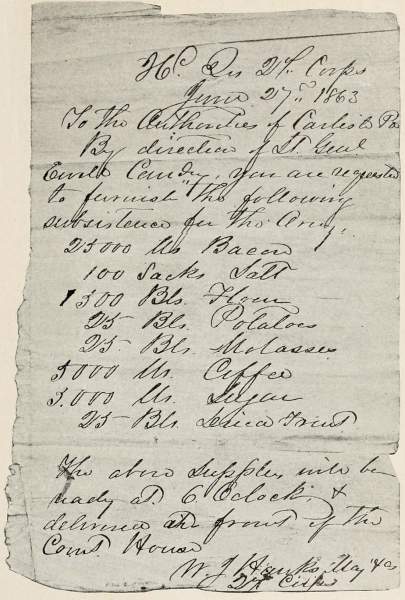 Hd. Qrs 2d. Corps
June 27th 1863
To the Authorities of Carlisle Pa
By direction of Lt Genl
Ewell Comdg, you are requested
to furnish the following
subsistence for the Army,
25000 lbs Bacon
100 Sacks Salt
1500 Bls. Flour
25 Bls. Potatoes
25 Bls. Molasses
5000 lbs. Coffee
5.000 lbs. Sugar
25 Bls. Dried Fruit
The above supplies will be
ready at 6 Oclock, &
delivered in front of the
Court House
W J Hawks, Maj & Cs
2d Corps